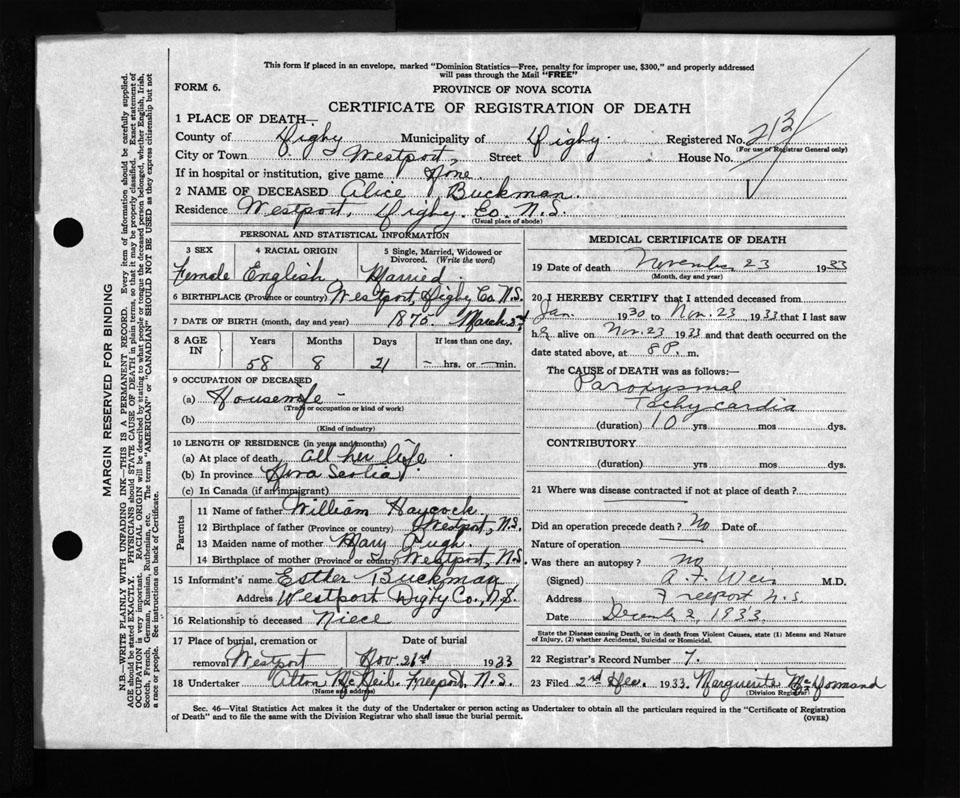 This form if placed in an envelope, marked "Dominion Statistics—Free, penalty for improper use, $300," and properly addressed
will pass through the Mail "FREE"
FORM 6.
PROVINCE OF NOVA SCOTIA
CERTIFICATE OF REGISTRATION OF DEATH
1 PLACE OF DEATH—
County of Digby Municipality of Digby Registered No. 213
(For use of Registrar General only)
City or Town Westport, Street House No.
If in hospital or institution, give name None
2 NAME OF DECEASED Alice Buckman.
Residence Westport, Digby. Co. N.S.
(Usual place of abode)
PERSONAL AND STATISTICAL INFORMATION
3 SEX 4 RACIAL ORIGIN 5 Single, Married, Widowed or Divorced. (Write the word)
Female English Married.
6 BIRTHPLACE (Province or country) Westport, Digby Co. N.S.
7 DATE OF BIRTH (month, day and year) 1875. March 2nd
8 AGE IN Years Months Days If less than one day,
58 8 21 — hrs. or — min.
9 OCCUPATION OF DECEASED
(a) Housewife -
(Trade or occupation or kind of work)
(b)
(Kind of industry)
10 LENGTH OF RESIDENCE (in years and months)
(a) At place of death all her life
(b) In province Nova Scotia
(c) In Canada (if an immigrant)
Parents
11 Name of father William Haycock.
12 Birthplace of father (Province or country) Westport, N.S.
13 Maiden name of mother Mary Pugh.
14 Birthplace of mother (Province or country) Westport, N.S.
15 Informant's name Esther Buckman
Address Westport Digby Co., N.S.
16 Relationship to deceased Niece
17 Place of burial, cremation or Date of burial
removal Westport Nov. 26 1933
18 Undertaker McNeil. Freeport, N.S.
(Name and address)
MEDICAL CERTIFICATE OF DEATH
19 Date of death November 23 1933
(Month, day and year)
20 I HEREBY CERTIFY that I attended deceased from
Jan. 1930 to Nov. 23 1933 that I last saw
her alive on Nov. 23 1933 and that death occurred on the
date stated above, at 8 P. m.
The CAUSE of DEATH was as follows:—
Paroxysmal
Tachycardia
(duration) 10 yrs mos dys.
CONTRIBUTORY
(duration) yrs mos dys.
21 Where was disease contracted if not at place of death?
Did an operation precede death? No Date of
Nature of operation
Was there an autopsy? No
(Signed) A. F. Weir M.D.
Address Freeport N.S.
Date December 2, 1933.
State the Disease causing Death, or in death from Violent Causes, state (1) Means and Nature
of Injury, (2) whether Accidental, Suicidal or Homicidal.
22 Registrar's Record Number 7.
23 Filed 2nd Dec. 1933. Marguerite
(Division Registrar)
Sec. 46—Vital Statistics Act makes it the duty of the Undertaker or person acting as Undertaker to obtain all the particulars required in the "Certificate of Registration
of Death" and to file the same with the Division Registrar who shall issue the burial permit.
(OVER)
MARGIN RESERVED FOR BINDING
N.B.—WRITE PLAINLY WITH UNFADING INK—THIS IS A PERMANENT RECORD. Every item of information should be carefully supplied.
AGE should be stated EXACTLY. PHYSICIANS should STATE CAUSE OF DEATH in plain terms, so that it may be properly classified. Exact statement of
OCCUPATION is very important. RACIAL ORIGIN will be described by stating to what people or tongue the deceased person belonged, whether English, Irish,
Scotch, French, German, Russian, Ruthenian, etc. The terms "AMERICAN" or "CANADIAN" SHOULD NOT BE USED as they express citizenship but not
a race or people. See instructions on back of Certificate.